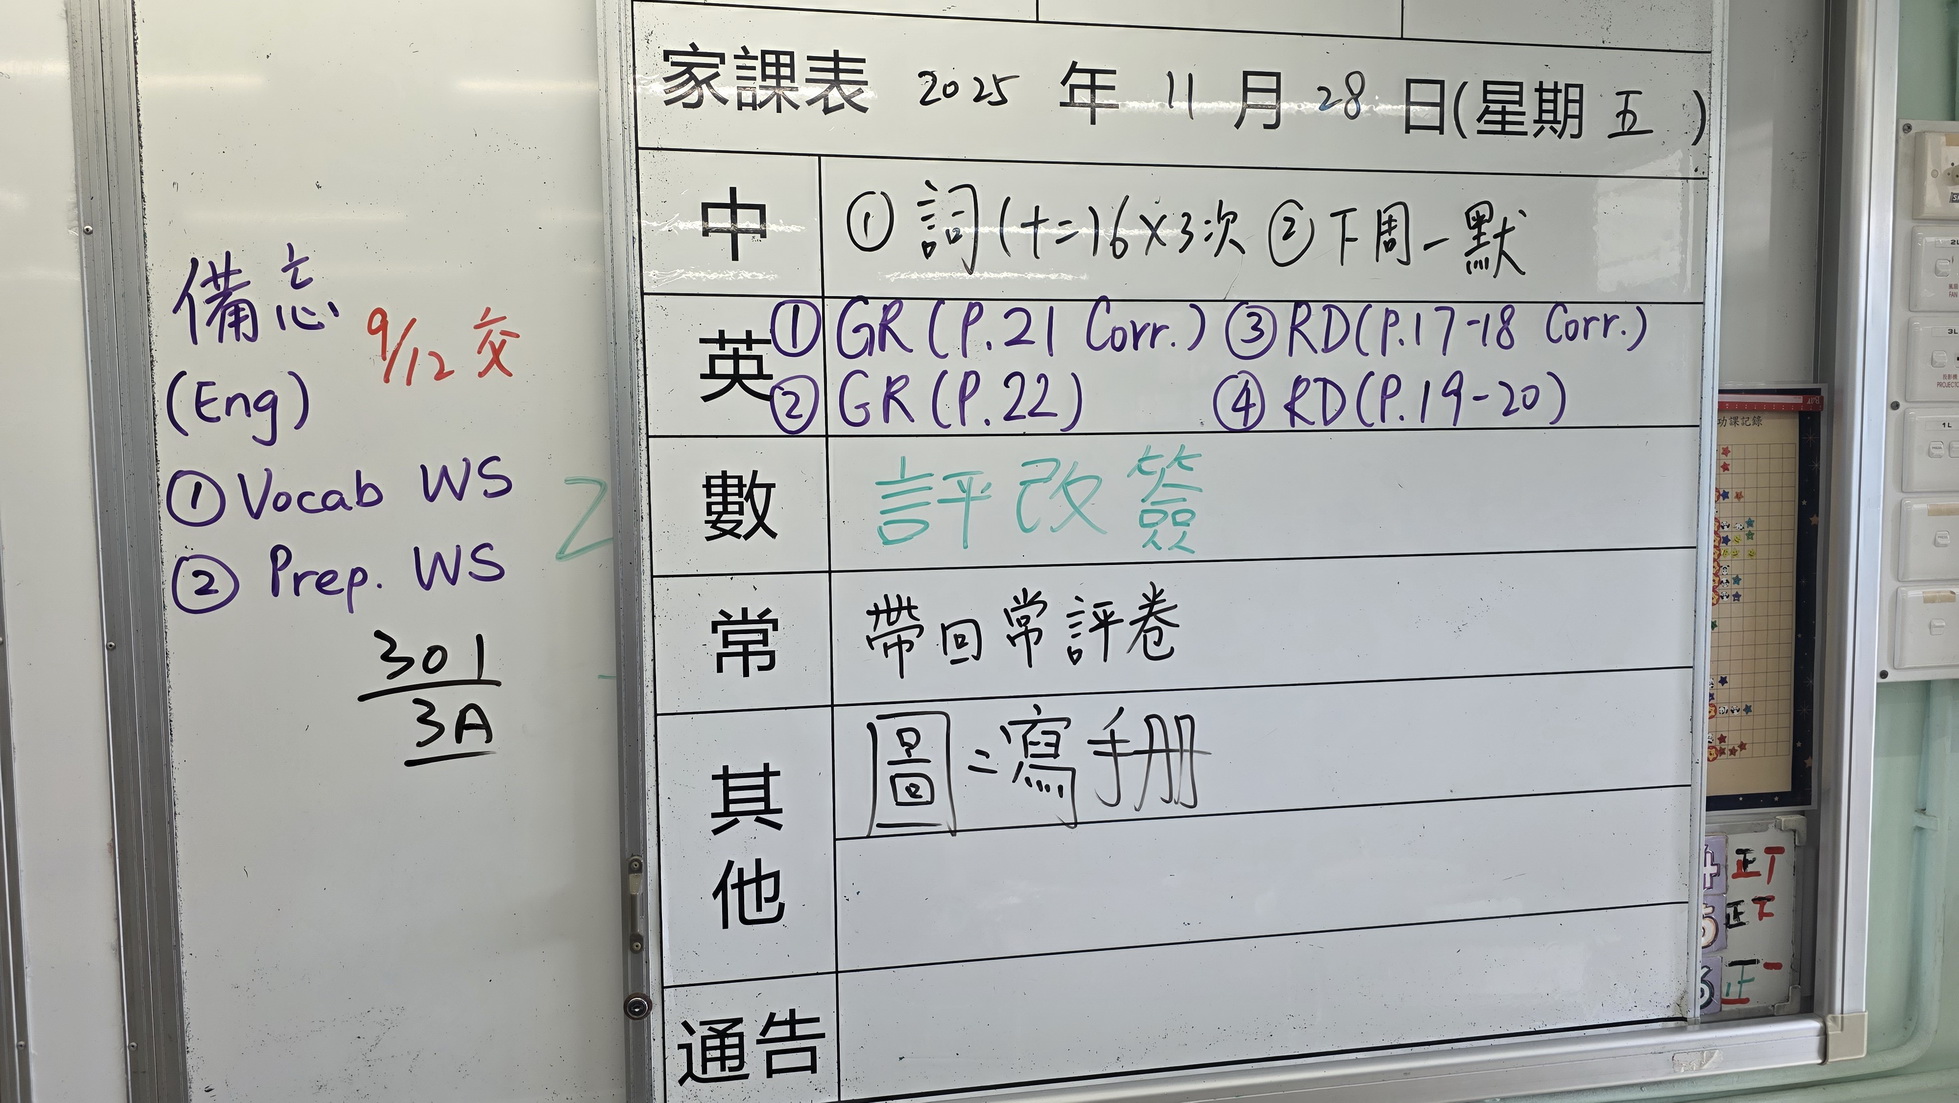 家課表 2025 年 11 月 28 日(星期 五 )
中 ① 詞(十二)6×3次 ② 下周一默
英 ① GR(P.21 Corr.) ③ RD(P.17-18 Corr.)
② GR(P.22) ④ RD(P.19-20)
數 評改簽
常 帶回常評卷
其他 圖:寫手册
通告
備忘 9/12 交
(Eng)
① Vocab WS
② Prep. WS
301
3A
功課記錄
4 正丅
5 正下
6 正一